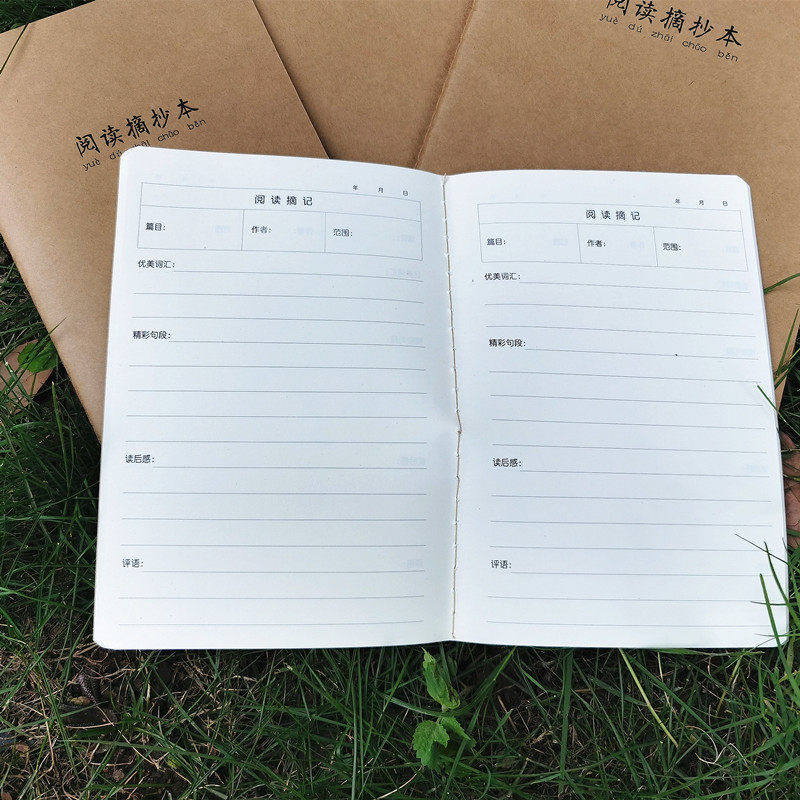 阅读摘抄本
yuè dú zhāi chāo běn
阅读摘抄本
yuè dú zhāi chāo běn
年 月 日
阅读摘记
篇目： 作者： 范围：
优美词汇：
精彩句段：
读后感：
评语：
年 月 日
阅读摘记
篇目： 作者： 范围：
优美词汇：
精彩句段：
读后感：
评语：